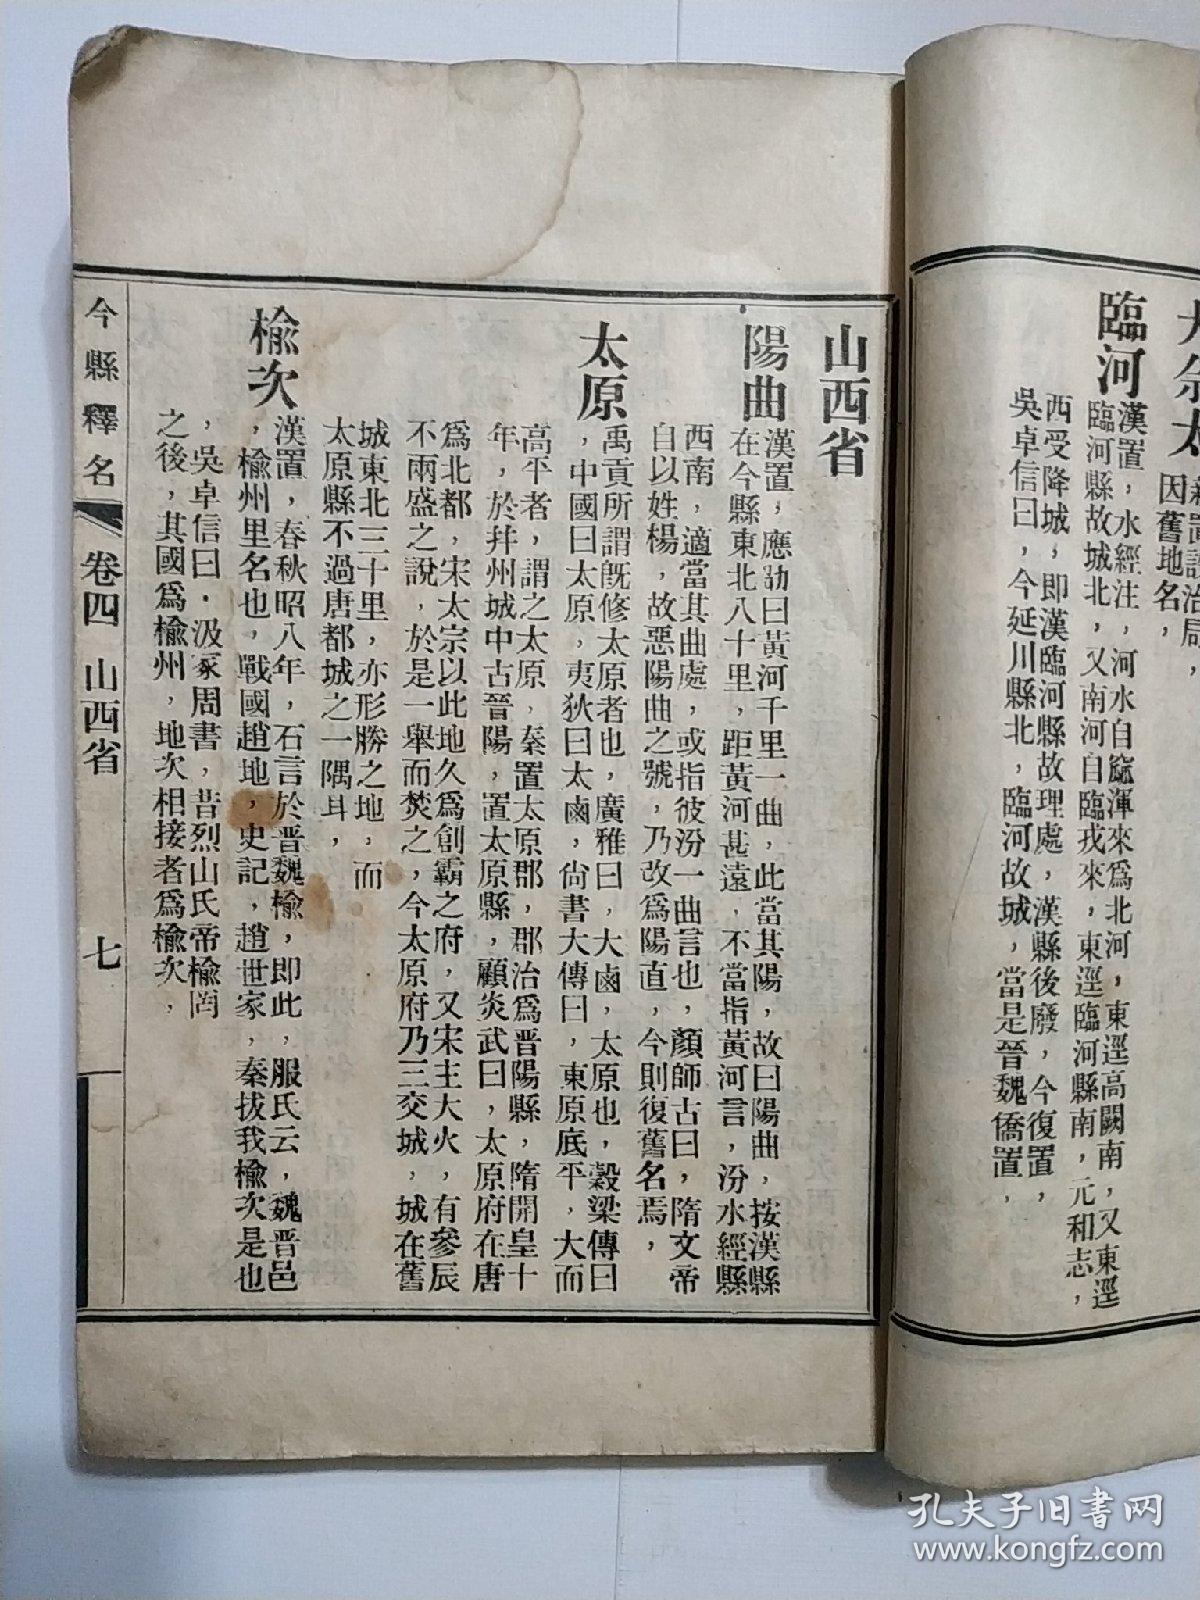 因舊地名，
臨河
漢置，水經注，河水自窳渾來爲北河，東逕高闕南，又東逕
臨河縣故城北，又南河自臨戎來，東逕臨河縣南，元和志，
西受降城，即漢臨河縣故理處，漢縣後廢，今復置，
吳卓信曰，今延川縣北，臨河故城，當是晉魏僑置，
山西省
陽曲
漢置，應劭曰黃河千里一曲，此當其陽，故曰陽曲，按漢縣
在今縣東北八十里，距黃河甚遠，不當指黃河言，汾水經縣
西南，適當其曲處，或指彼汾一曲言也，顏師古曰，隋文帝
自以姓楊，故惡陽曲之號，乃改爲陽直，今則復舊名焉，
太原
禹貢所謂旣修太原者也，廣雅曰，大鹵，太原也，穀梁傳曰
，中國曰太原，夷狄曰大鹵，尙書大傳曰，東原底平，大而
高平者，謂之太原，秦置太原郡，郡治爲晋陽縣，隋開皇十
年，於幷州城中古晉陽，置太原縣，顧炎武曰，太原府在唐
爲北都，宋太宗以此地久爲創霸之府，又宋主大火，有參辰
不兩盛之說，於是一舉而焚之，今太原府乃三交城，城在舊
城東北三十里，亦形勝之地，而
太原縣不過唐都城之一隅耳，
楡次
漢置，春秋昭八年，石言於晋魏楡，即此，服氏云，魏晋邑
，楡州里名也，戰國趙地，史記，趙世家，秦拔我楡次是也
，吳卓信曰，汲冢周書，昔烈山氏帝楡罔
之後，其國爲楡州，地次相接者爲楡次，
今縣釋名
卷四 山西省
七
孔夫子旧书网
www.kongfz.com